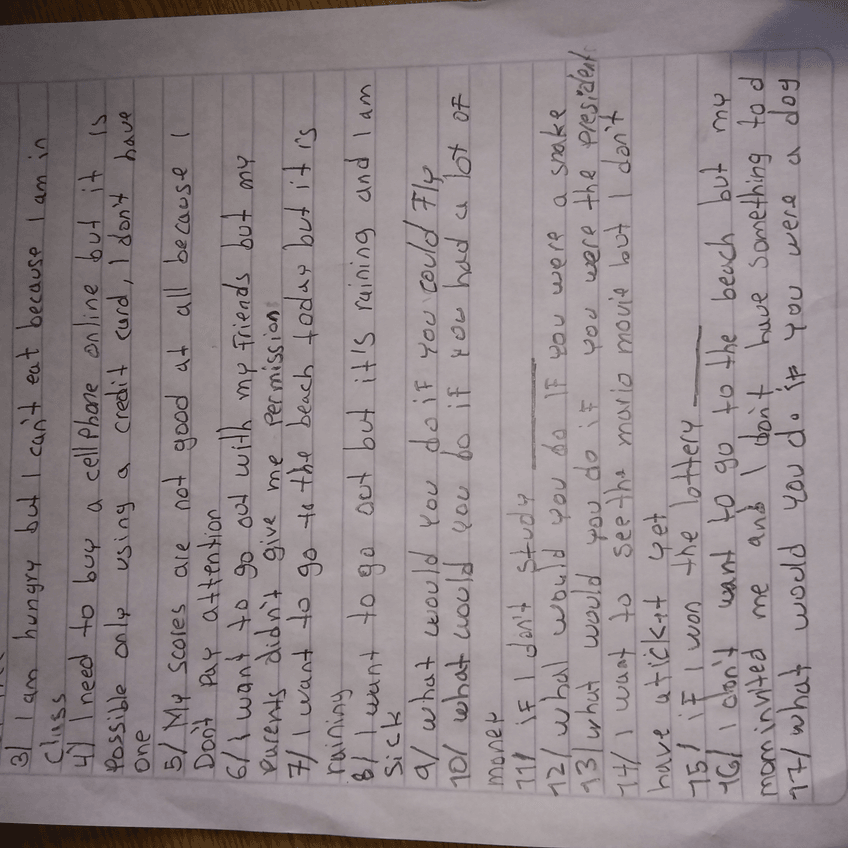 3) I am hungry but I can't eat because I am in
Class
4) I need to buy a cellphone online but it is
Possible only using a credit card, I don't have
one
5/ My scores are not good at all because I
Don't Pay attention
6/ I want to go out with my friends but my
Parents didn't give me permission
7/ I want to go to the beach today but it is
raining
8/ I want to go out but it's raining and I am
Sick
9/ what would you do if you could Fly
10/ what would you do if you had a lot of
money
11/ if I don't study ______
12/ what would you do If you were a snake
13/ what would you do if you were the president
14/ I want to see the mario movie but I don't
have a tickit yet
15/ if I won the lottery ______
16/ I don't want to go to the beach but my
mom invited me and I don't have something to d
17/ what would you do if you were a dog